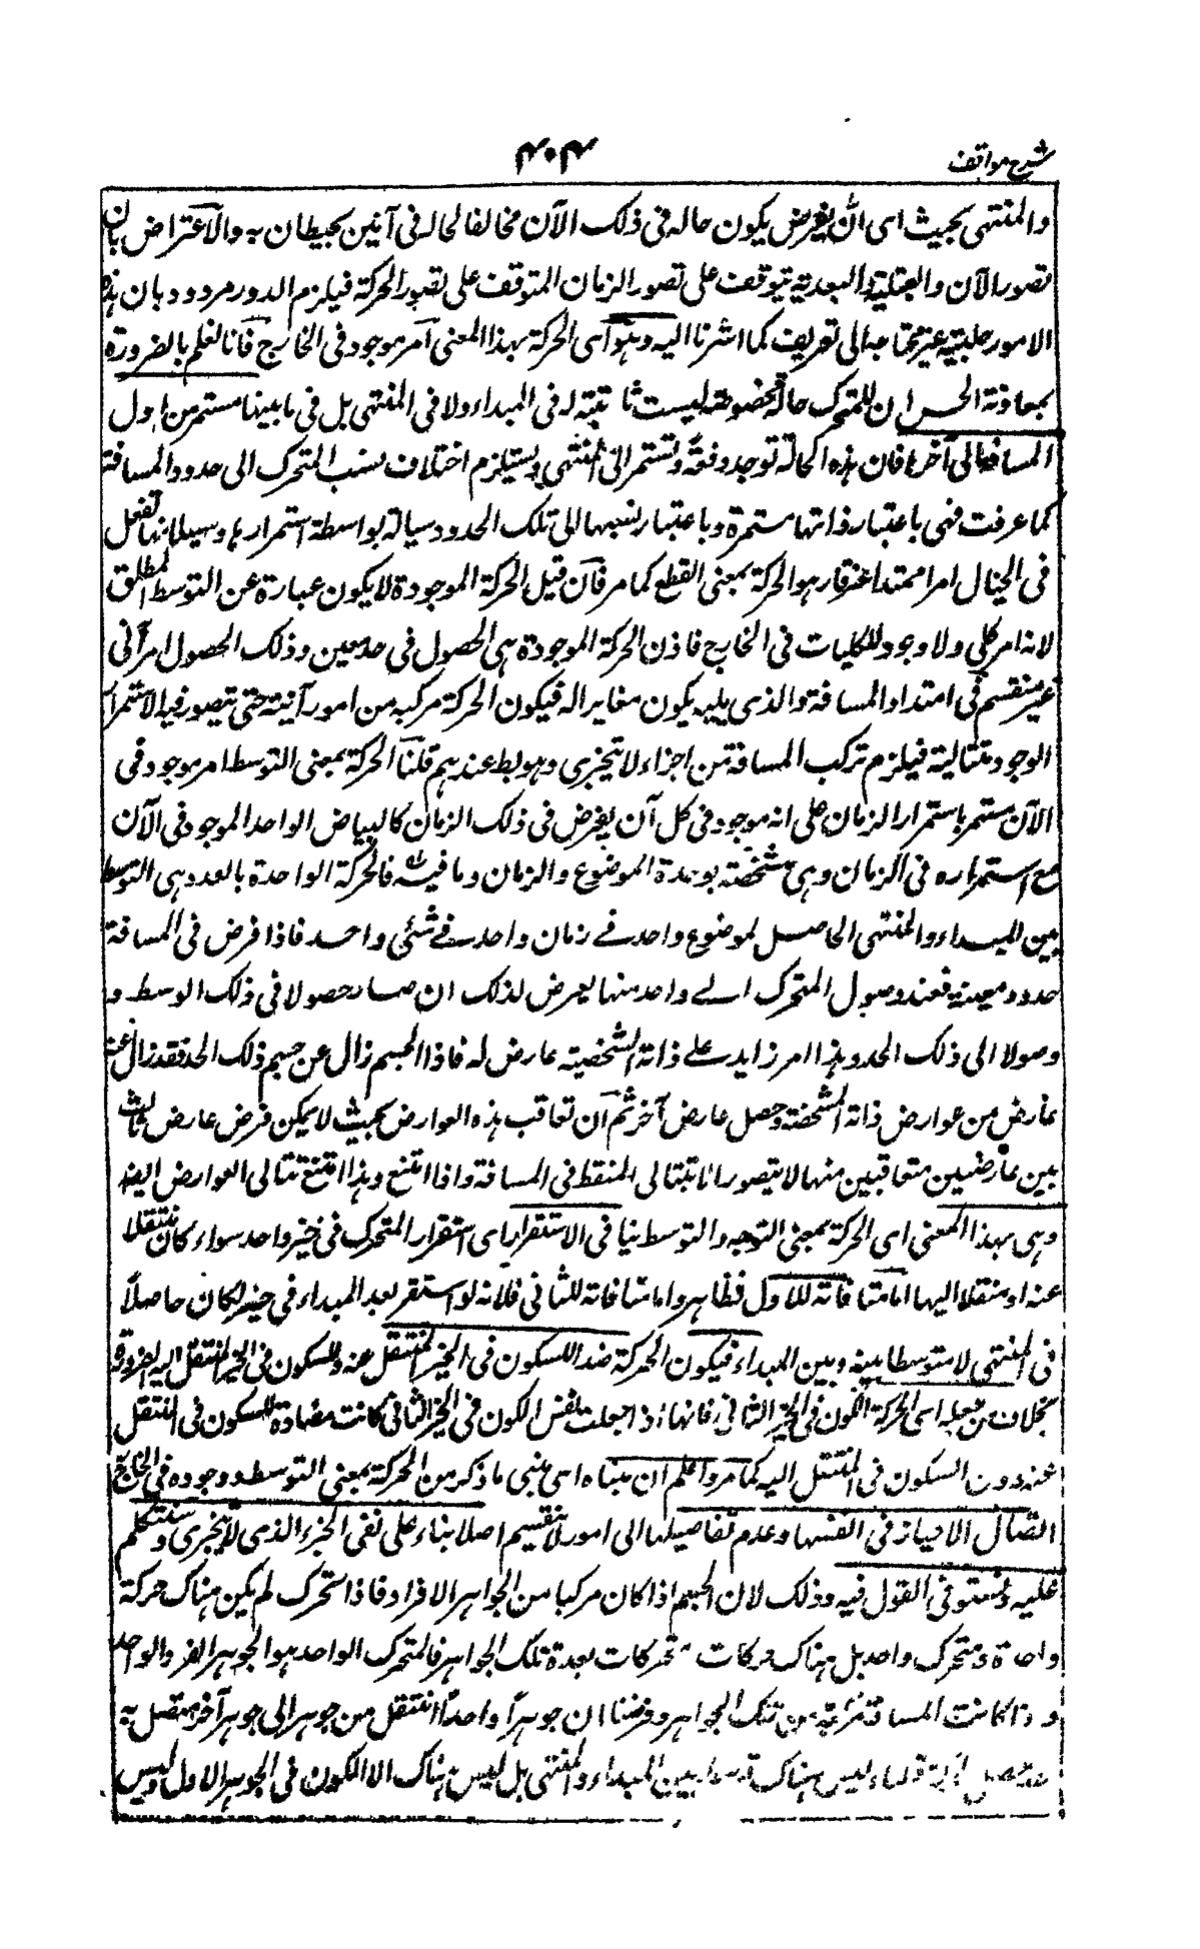 شرح مواقف
۴۰۴
والمنتهى بحيث اى آن يفرض يكون حاله فى ذلك الآن مخالفا لحاله فى آنين يحيطان به والاعتراض بان
تصور الآن والقبلية والبعدية يتوقف على تصور الزمان المتوقف على تصور الحركة فيلزم الدور مردود بان هذه
الامور جلية غير محتاجة الى تعريف كما اشرنا اليه وهو اى الحركة بهذا المعنى امر موجود فى الخارج فانا نعلم بالضرورة
بمعاونة الحس ان للمتحرك حالة مخصوصة ليست ثابتة له فى المبداء ولا فى المنتهى بل فى ما بينهما مستمر من اول
المسافة الى آخرها فان هذه الحالة توجد دفعة وتستمر الى المنتهى ويستلزم اختلاف نسب المتحرك الى حدود المسافة
كما عرفت فهى باعتبار ذاتها مستمرة وباعتبار نسبهما الى تلك الحدود سيالة بواسطة استمرارها وسيلانها تفعل
فى الخيال امرا ممتدا غير قار هو الحركة بمعنى القطع كما مر فان قيل الحركة الموجودة لا يكون عبارة عن التوسط المطلق
لانه امر كلى ولا وجود للكليات فى الخارج فاذن الحركة الموجودة هى الحصول فى حد معين وذلك الحصول امر آنى
غير منقسم فى امتداد المسافة والذى يليه يكون مغايرا له فيكون الحركة مركبه من امور آنية حتى يتصور فيه الاستمرار
الوجود متتالية فيلزم تركب المسافة من اجزاء لا يتجزى وهو بط عندهم قلنا الحركة بمعنى التوسط امر موجود فى
الآن مستمر باستمرار الزمان على انه موجود فى كل آن يفرض فى ذلك الزمان كالبياض الواحد الموجود فى الآن
مع استمراره فى الزمان وهى متشخصة بوحدة الموضوع والزمان وما فيه فالحركة الواحدة بالعدد هى التوسط
بين المبداء والمنتهى الحاصل لموضوع واحد فى زمان واحد فى شئى واحد فاذا فرض فى المسافة
حدود معينة فعند وصول المتحرك الى واحد منها يعرض لذلك ان صار حصولا فى ذلك الوسط و
وصولا الى ذلك الحد وهذا امر زايد على ذاته الشخصية عارض له فاذا الجسم زال عن جسم ذلك الحد فقد زال عنه
عارض من عوارض ذاته المشخصة وحصل عارض آخر ثم ان تعاقب هذه العوارض بحيث لا يمكن فرض عارض ثالث
بين عارضين متعاقبين منها لا يتصور الا بتتالى النقط فى المسافة واذا امتنع هذا امتنع تتالى العوارض ايضا
وهى بهذا المعنى اى الحركة بمعنى التوجه والتوسط ينافى الاستقرار اى استقرار المتحرك فى حيز واحد سواء كان منتقلا
عنه او منتقلا اليها اما منافاته للاول فظاهر واما منافاته للثانى فلانه لو استقر بعد المبداء فى حيز لكان حاصلا
فى المنتهى لا متوسطا بينه وبين المبداء فيكون الحركة ضد السكون فى الحيز المنتقل عنه وللسكون فى الحيز المنتقل اليه بالضرورة
بخلاف من جعله اى الحركة الكون فى الحيز الثانى فانها اذا جعلت نفس الكون فى الحيز الثانى كانت مضادة للسكون فى المنتقل
عنه دون السكون فى المنتقل اليه كما مر واعلم ان مبناه اى مبنى ما ذكر من الحركة بمعنى التوسط ووجوده فى الخارج
اتصال الاحياز فى انفسها وعدم تفاصيلها الى امور لا تنقسم اصلا بناء على نفى الجزء الذى لا يتجزى وستكلم
عليه ونستوفى القول فيه وذلك لان الجسم اذا كان مركبا من الجواهر الافراد فاذا تحرك لم يكن هناك حركة
واحدة ومتحرك واحد بل هناك حركات متحركات بعدة تلك الجواهر فالمتحرك الواحد هو الجوهر الفرد الواحد
واذا كانت المسافة مركبة من تلك الجواهر وفرضنا ان جوهرا واحدا انتقل من جوهر الى جوهر آخر متصل به
ليس هناك توسط بين المبداء والمنتهى بل ليس هناك الا الكون فى الجوهر الاول وليس